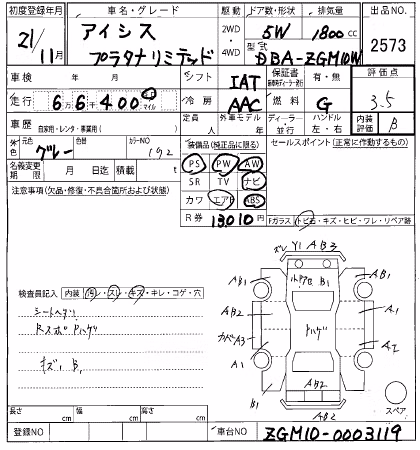 初度登録年月 車名・グレード 駆動 ドア数・形状 排気量 出品NO
21/11月 アイシス プラタナリミテッド 2WD・4WD 5W 1800cc 2573
型式 DBA-ZGM10W
車検 年 月 シフト IAT 保証書 有・無 評価点
走行 6万6千400 km マイル 冷房 AAC 燃料 G 3.5
車歴 自家用・レンタ・事業用( ) 定員 人 外車モデル 年 ディーラー・並行 ハンドル 左・右 内装評価 B
外色 元色 グレー 色替 カラーNO 192 装備品(純正品に限る) セールスポイント(正常に作動するもの)
名義変更期限 月 日迄 積載 t
PS PW AW
SR TV ナビ
カワ エアB ABS
R券 13,010円
注意事項(欠品・修復・不具合箇所および状態)
Fガラス(トビ石・キズ・ヒビ・ワレ・リペア跡
検査員記入 内装(汚レ・スレ・キズ・キレ・コゲ・穴
シートヘタリ
キズ B1
Y1 AB3
AB1 B1 AB1
AB2 ハゲ A1
A3
A1 A2
B1 AB2
AB2
スペア
長さ cm 幅 cm 高さ cm
登録NO 車台NO ZGM10-0003119